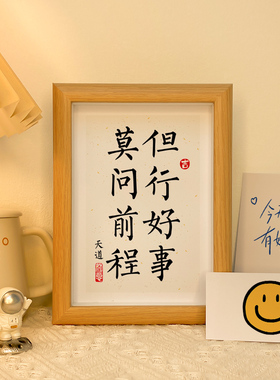 但行好事
莫问前程
天道
今天
有